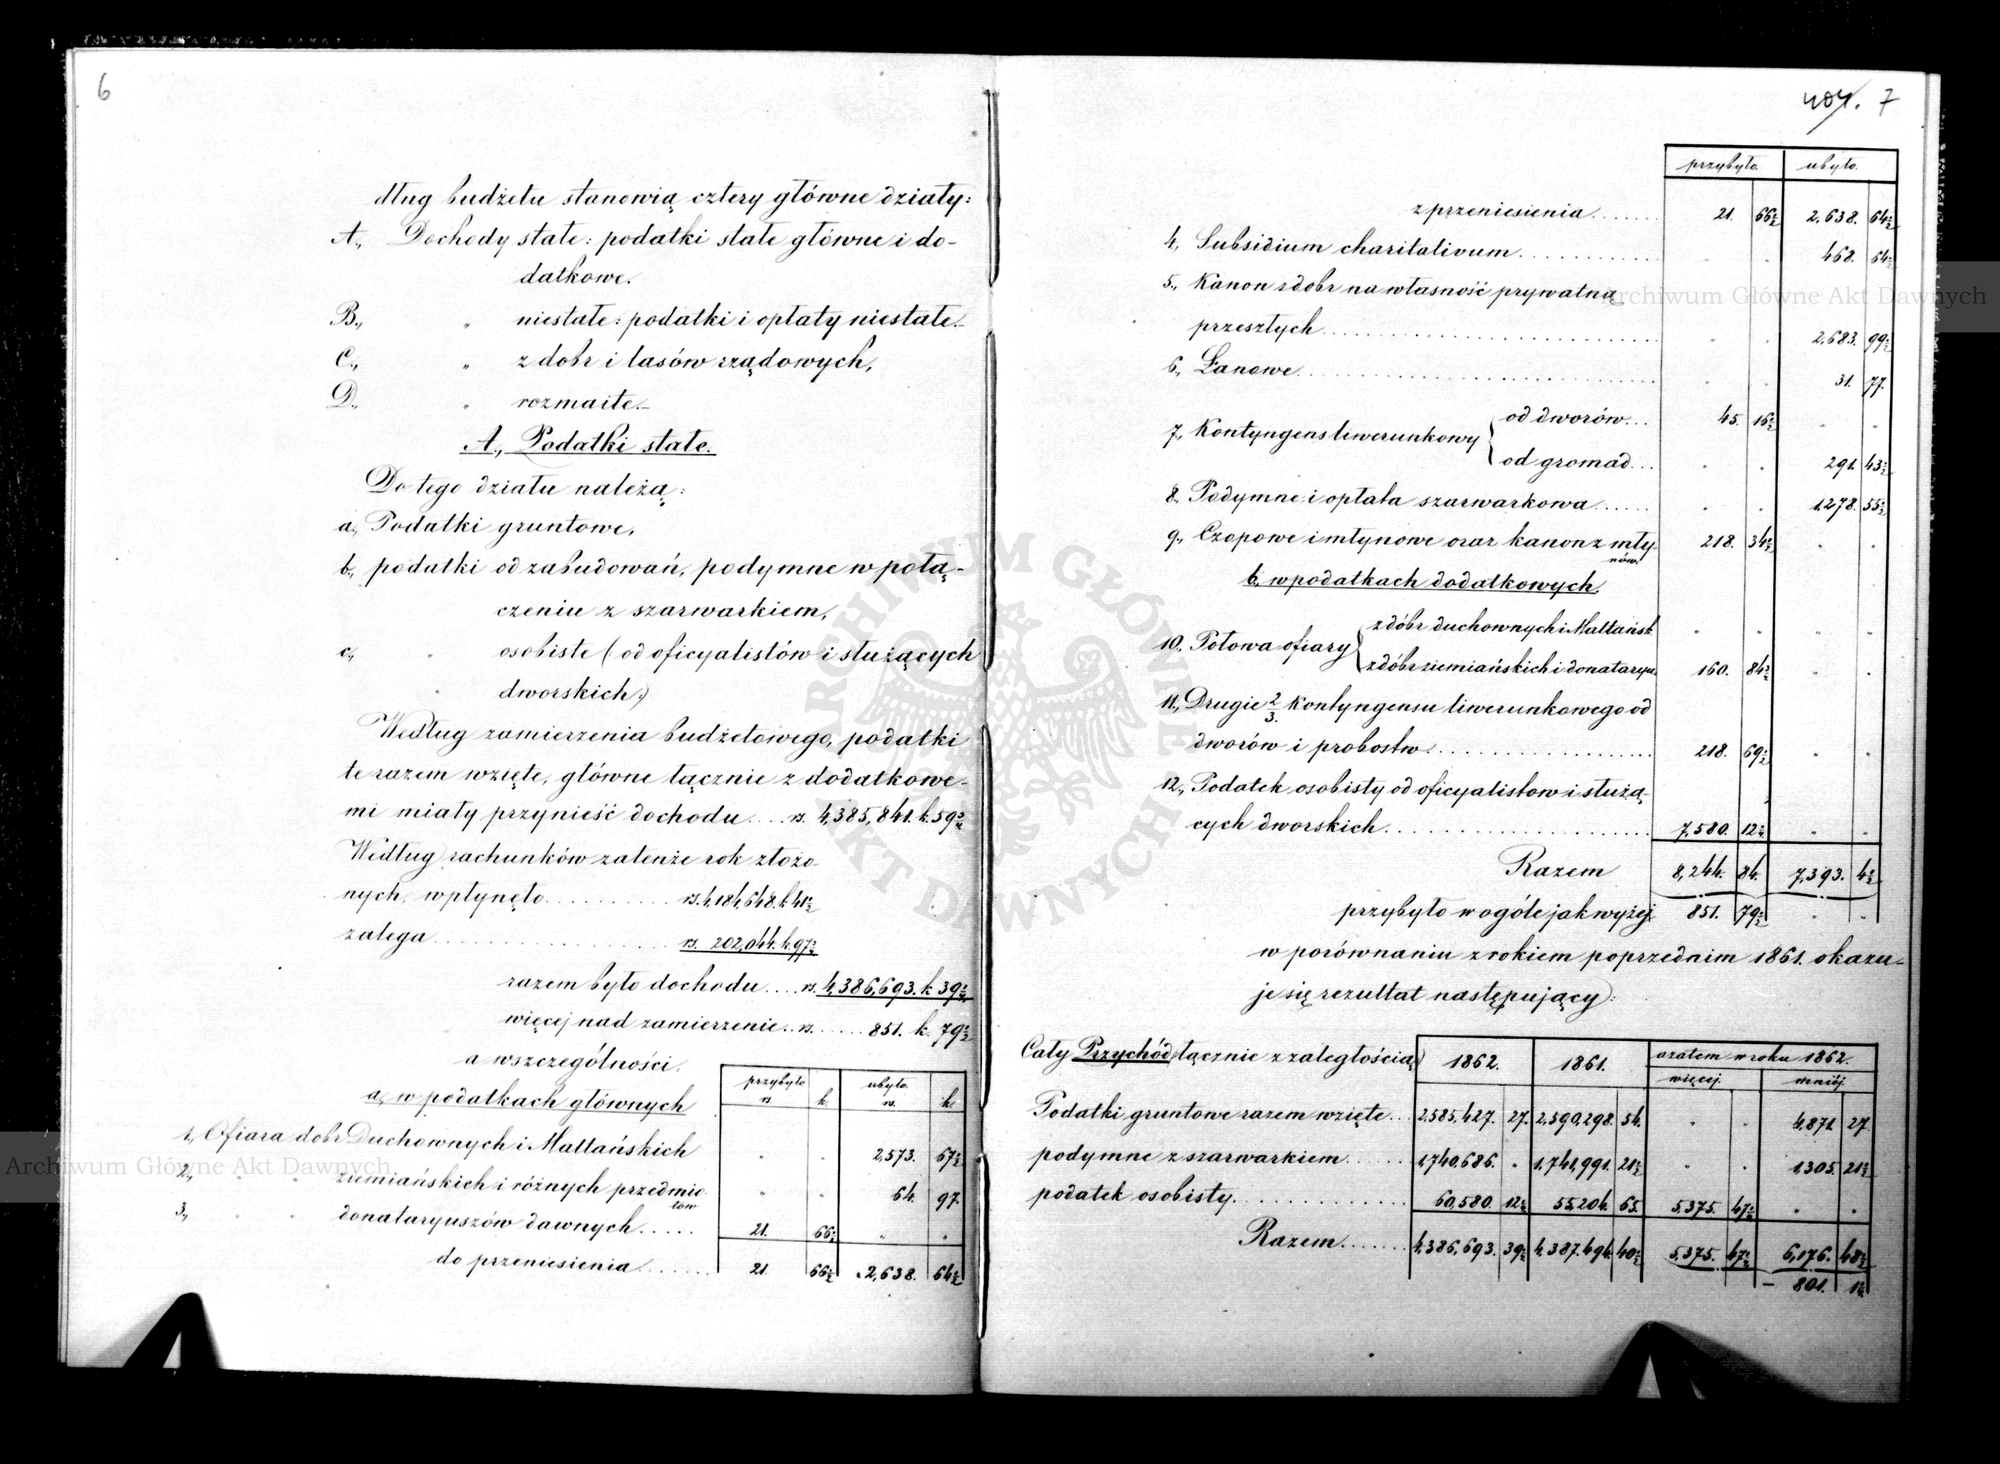 6
dług budżetu stanowią cztery główne działy:
A., Dochody stałe: podatki stałe główne i do-
datkowe.
B., „ niestałe: podatki i opłaty niestałe.
C., „ z dobr i lasów rządowych,
D., „ rozmaite.
A., Podatki stałe.
Do tego działu należą:
a., Podatki gruntowe,
b., podatki od zabudowań, podymne w połą-
czeniu z szarwarkiem,
c., „ osobiste (od oficyalistów i służących
dworskich.)
Według zamierzenia budżetowego, podatki
te razem wzięte, główne łącznie z dodatkowe-
mi miały przynieść dochodu .... rs. 4,385,841. k. 59½
Według rachunków za tenże rok złożo-
nych, wpłynęło .......... rs. 4,184,648. k. 41½
zalega .................... rs. 202,044. k. 97½
razem było dochodu .... rs. 4,386,693. k. 39½
więcej nad zamierzenie .. rs. ..... 851. k. 79½
a w szczególności:
przybyło ubyło.
rs. k. rs. k.
a., w podatkach głównych
1., Ofiara dobr Duchownych i Maltańskich „ „ 2,573. 67½
2., „ „ ziemiańskich i różnych przedmio-
tów „ „ 64. 97.
3., „ „ donataryuszów dawnych ..... 21. 66½ „ „
do przeniesienia ....... 21. 66½ 2,638. 64½
404. 7
przybyło. ubyło.
z przeniesienia ...... 21. 66½ 2,638. 64½
4., Subsidium charitativum ............ „ „ 468. 64½
5., Kanon z dobr na własność prywatną
przeszłych ............................ „ „ 2,683. 99½
6., Łanowe ............................ „ „ 31. 77.
7., Kontyngens liwerunkowy { od dworów ... 45. 16½ „ „
od gromad ... „ „ 291. 43½
8., Podymne i opłata szarwarkowa ...... „ „ 1,278. 55½
9., Czopowe i młynowe oraz kanon z mły-
nów. 218. 34½ „ „
b., w podatkach dodatkowych.
10., Połowa ofiary { z dóbr duchownych i Maltańsk. „ „ „ „
z dóbr ziemiańskich i donataryu. 160. 84½ „ „
11., Drugie 2/3. Kontyngensu liwerunkowego od
dworów i probostw .................. 218. 69½ „ „
12., Podatek osobisty od oficyalistow i służą-
cych dworskich ...................... 7,580. 12½ „ „
Razem 8,244. 84. 7,393. 4½
przybyło w ogóle jak wyżej 851. 79½ „ „
w porównaniu z rokiem poprzednim 1861. okazu-
je się rezultat następujący:
Cały Przychód łącznie z zaległością 1862. 1861. a zatem w roku 1862.
więcej. mniéj.
Podatki gruntowe razem wzięte ... 2,585,427. 27. 2,590,298. 54. „ „ 4,871. 27.
podymne z szarwarkiem ...... 1,740,686. „ 1,741,991. 21½ „ „ 1,305. 21½
podatek osobisty .............. 60,580. 12½ 55,204. 65. 5,375. 47½ „ „
Razem ....... 4,386,693. 39½ 4,387,494. 40½ 5,375. 47½ 6,176. 48½
— 801. 1½
Archiwum Główne Akt Dawnych
Archiwum Główne Akt Dawnych
ARCHIWUM GŁÓWNE AKT DAWNYCH